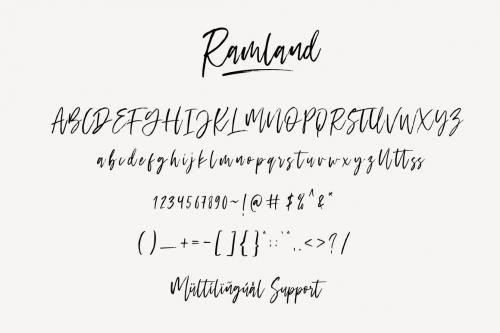 Ramland
ABCDEFGHIJKLMNOPQRSTUVWXYZ
abcdefghijklmnopqrstuvwxyzUttss
1234567890~!@#$%^&*
()_+=-[]{}"::'",.<>?/
Mültilïñgúâl Support